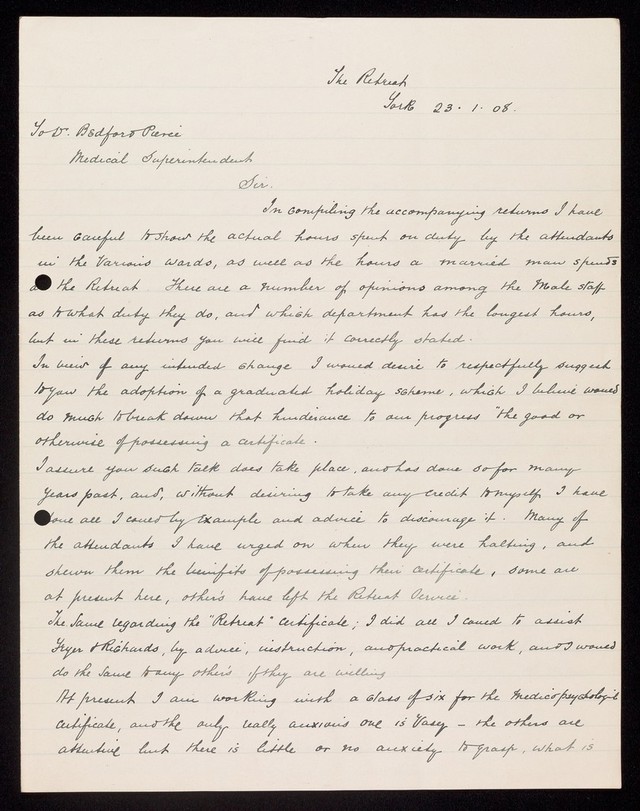 The Retreat
York 23.1.08.
To Dr. Bedford Pierce
Medical Superintendent
Sir.
In compiling the accompanying returns I have
been careful to show the actual hours spent on duty by the attendants
in the various wards, as well as the hours a married man spends
at the Retreat There are a number of opinions among the Male staff
as to what duty they do, and which department has the longest hours,
but in these returns you will find it correctly stated.
In view of any intended change I would desire to respectfully suggest
to you the adoption of a graduated holiday scheme, which I believe would
do much to break down that hinderance to our progress "the good or
otherwise of possessing a certificate.
I assure you such talk does take place, and has done so for many
years past, and, without desiring to take any credit to myself I have
done all I could by example and advice to discourage it. Many of
the attendants I have urged on when they were halting, and
shewn them the benifits of possessing their certificate, some are
at present here, other's have left the Retreat Service.
The same regarding the "Retreat" certificate; I did all I could to assist
Fryer & Richards, by advice, instruction, and practical work, and I would
do the same to any other's if they are willing
At present I am working with a class of six for the Medico psychologic
certificate, and the only really anxious one is Vasey – the others are
attentive but there is little or no anxiety to grasp, what is